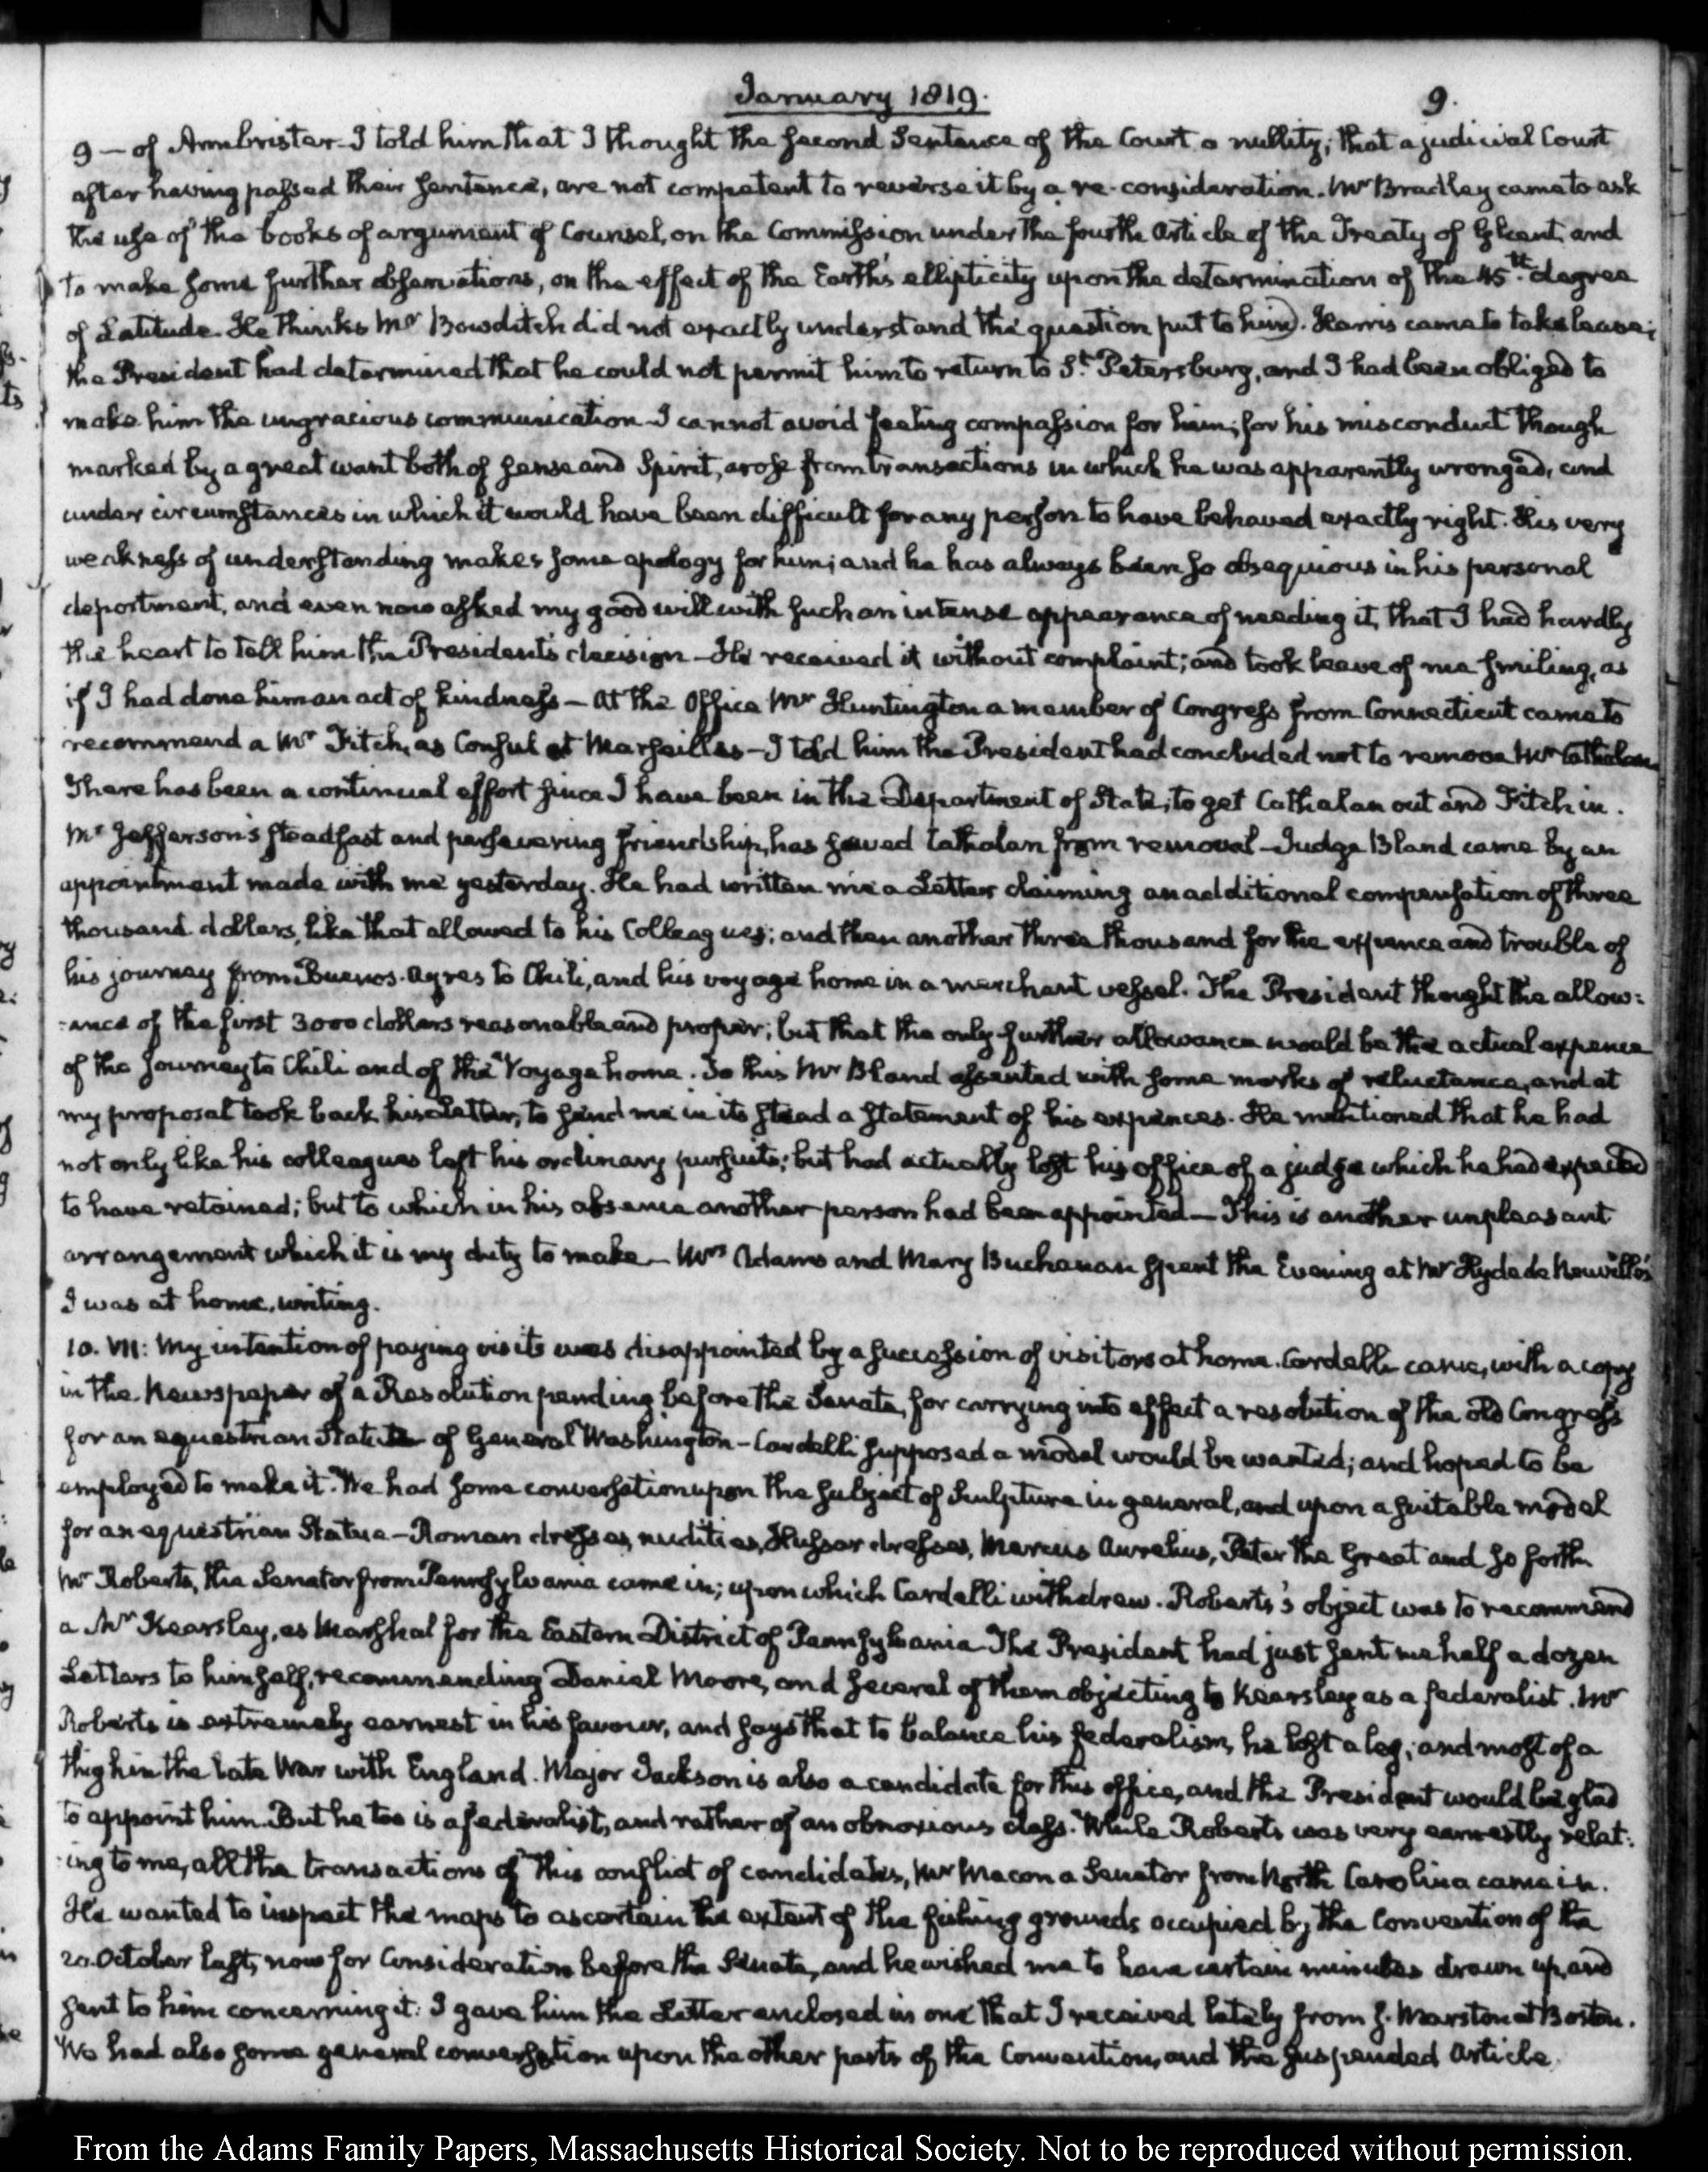 January 1819.
9.
9 — of Armbrister. I told him that I thought the second Sentence of the Court a nullity; that a judicial Court
after having passed their sentence, are not competent to reverse it by a re-consideration. Mr Bradley came to ask
the use of the books of argument of Counsel, on the Commission under the fourth Article of the Treaty of Ghent, and
to make some further observations, on the effect of the Earth's ellipticity upon the determination of the 45th degree
of Latitude. He thinks Mr Bowditch did not exactly understand the question put to him. Harris came to take leave;
the President had determined that he could not permit him to return to St Petersburg, and I had been obliged to
make him the ungracious communication. I cannot avoid feeling compassion for him; for his misconduct though
marked by a great want both of sense and Spirit, arose from transactions in which he was apparently wronged, and
under circumstances in which it would have been difficult for any person to have behaved exactly right. His very
weakness of understanding makes some apology for him; and he has always been so obsequious in his personal
deportment, and even now asked my good will with such an intense appearance of needing it, that I had hardly
the heart to tell him the President's decision — He received it without complaint; and took leave of me smiling, as
if I had done him an act of kindness — At the Office Mr Huntington a member of Congress from Connecticut came to
recommend a Mr Fitch, as Consul at Marseilles — I told him the President had concluded not to remove Mr Cathalan
There has been a continual effort since I have been in the Department of State, to get Cathalan out and Fitch in.
Mr Jefferson's steadfast and persevering friendship, has saved Cathalan from removal — Judge Bland came by an
appointment made with me yesterday. He had written me a Letter claiming an additional compensation of three
thousand dollars, like that allowed to his Colleagues; and then another three thousand for the expence and trouble of
his journey from Buenos-Ayres to Chili, and his voyage home in a merchant vessel. The President thought the allow:
:ance of the first 3000 dollars reasonable and proper; but that the only further allowance would be the actual expence
of the Journey to Chili and of the Voyage home. To this Mr Bland assented with some marks of reluctance, and at
my proposal took back his Letter, to send me in its stead a statement of his expences. He mentioned that he had
not only like his colleagues left his ordinary pursuits; but had actually lost his office of a judge which he had expected
to have retained; but to which in his absence another person had been appointed — This is another unpleasant
arrangement which it is my duty to make — Mrs Adams and Mary Buchanan spent the Evening at Mr Hyde de Neuville's
I was at home, writing.
10. VII: My intention of paying visits was disappointed by a succession of visitors at home. Cardelli came, with a copy
in the Newspaper of a Resolution pending before the Senate, for carrying into effect a resolution of the old Congress
for an equestrian Statue of General Washington — Cardelli supposed a model would be wanted; and hoped to be
employed to make it. We had some conversation upon the subject of Sculpture in general, and upon a suitable model
for an equestrian Statue — Roman dresses, nudities, Hussar dresses, Marcus Aurelius, Peter the Great and so forth
Mr Roberts, the Senator from Pennsylvania came in; upon which Cardelli withdrew. Roberts's object was to recommend
a Mr Kearsley, as Marshal for the Eastern District of Pennsylvania. The President had just sent me half a dozen
Letters to himself, recommending Daniel Moore, and several of them objecting to Kearsley as a federalist. Mr
Roberts is extremely earnest in his favour, and says that to balance his federalism, he lost a leg, and most of a
thigh in the late War with England. Major Jackson is also a candidate for this office, and the President would be glad
to appoint him. But he too is a federalist, and rather of an obnoxious class. While Roberts was very earnestly relat:
:ing to me, all the transactions of this conflict of candidates, Mr Macon a Senator from North Carolina came in.
He wanted to inspect the maps to ascertain the extent of the fishing grounds occupied by the Convention of the
20. October last, now for Consideration before the Senate, and he wished me to have certain minutes drawn up, and
sent to him concerning it: I gave him the Letter enclosed in one that I received lately from J. Marston at Boston.
We had also some general conversation upon the other parts of the Convention, and the suspended Article.
From the Adams Family Papers, Massachusetts Historical Society. Not to be reproduced without permission.